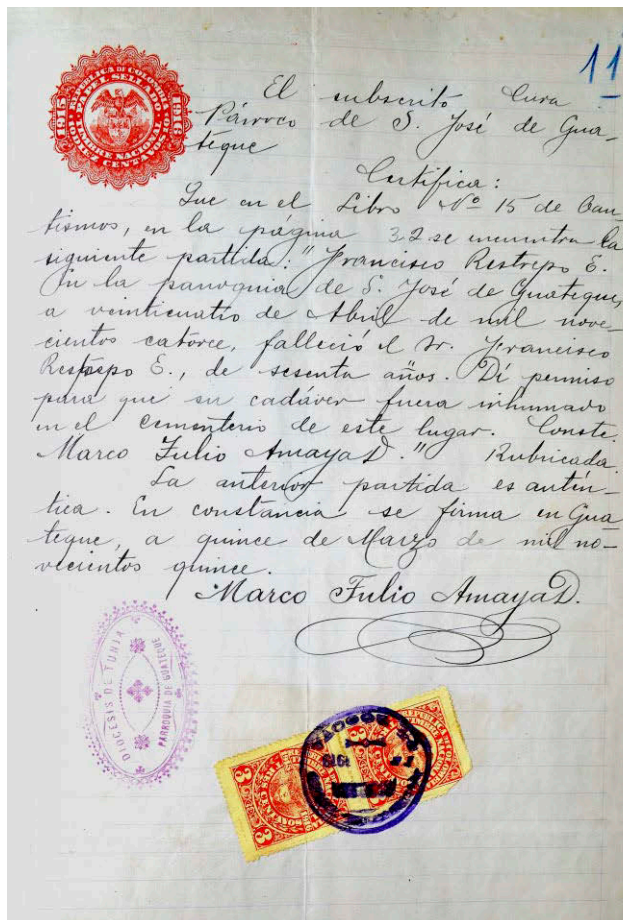 11
REPUBLICA DE COLOMBIA
PAPEL SELLADO
1915 1916
TIMBRE NACIONAL
DIEZ CENTAVOS
El subscrito Cura
Párroco de S. José de Gua-
teque
Certifica:
Que en el Libro Nº 15 de Bau-
tismos, en la página 32 se encuentra la
siguiente partida: "Francisco Restrepo E.
En la parroquia de S. José de Guateque,
a veinticuatro de Abril de mil nove-
cientos catorce, falleció el Sr. Francisco
Restrepo E., de sesenta años. Dí permiso
para que su cadáver fuera inhumado
en el cementerio de este lugar. Conste.
Marco Julio Amaya D." Rubricada.
La anterior partida es autén-
tica. En constancia se firma en Gua
teque, a quince de Marzo de mil no-
vecientos quince.
Marco Julio Amaya D.
DIOCESIS DE TUNJA
PARROQUIA DE GUATEQUE
3 3
3 3